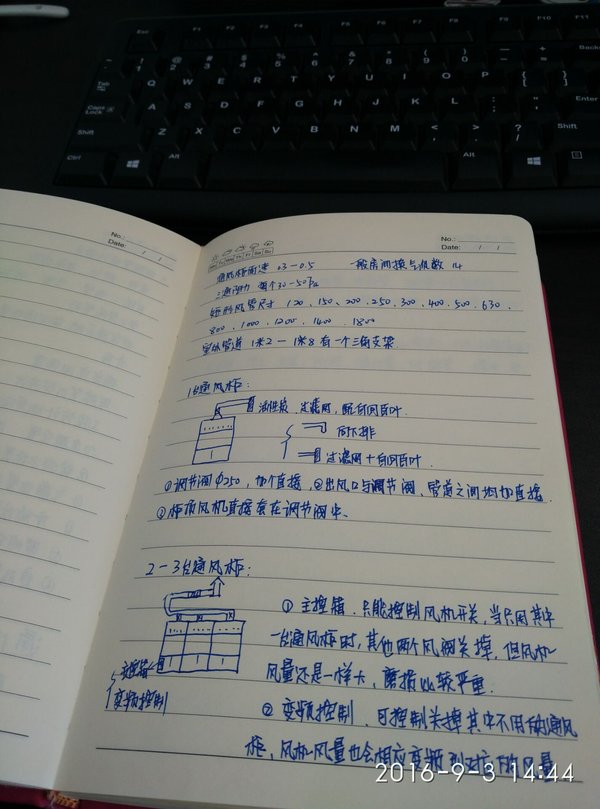 Esc F1 F2 F3 F4 F5 F6 F7 F8 F9 F10 F11
Tab Q W E R T Y U I O P
Caps Lock A S D F G H J K L
Enter
Shift Z X C V B N M Shift
Ctrl Alt Alt Ctrl
No.:
Date: / /
No.:
Date: / /
Mo Tu We Th Fr Sa Su
通风柜面速 0.3—0.5 一般房间换气次数 14
三通阻力 每个30-50Pa
矩形风管尺寸 120、150、200、250、300、400、500、630、
800、1000、1200、1400、1800
室外管道 1米2—1米8有一个三角支架
1台通风柜:
活性炭、过滤网,配自回百叶
向下排
过滤网+自回百叶.
①调节阀φ250,加个直接.②出风口与调节阀、管道之间均加直接.
③柜顶风机直接套在调节阀中.
2-3台通风柜:
①主控箱,只能控制风机开关,当只用其中
一台通风柜时,其他两个风阀关掉,但风机
风量还是一样大,磨损比较严重.
主控箱
变频控制
②变频控制,可控制关掉其中不用的通风
柜,风机风量也会相应变频到对应的风量
2016-9-3 14:44